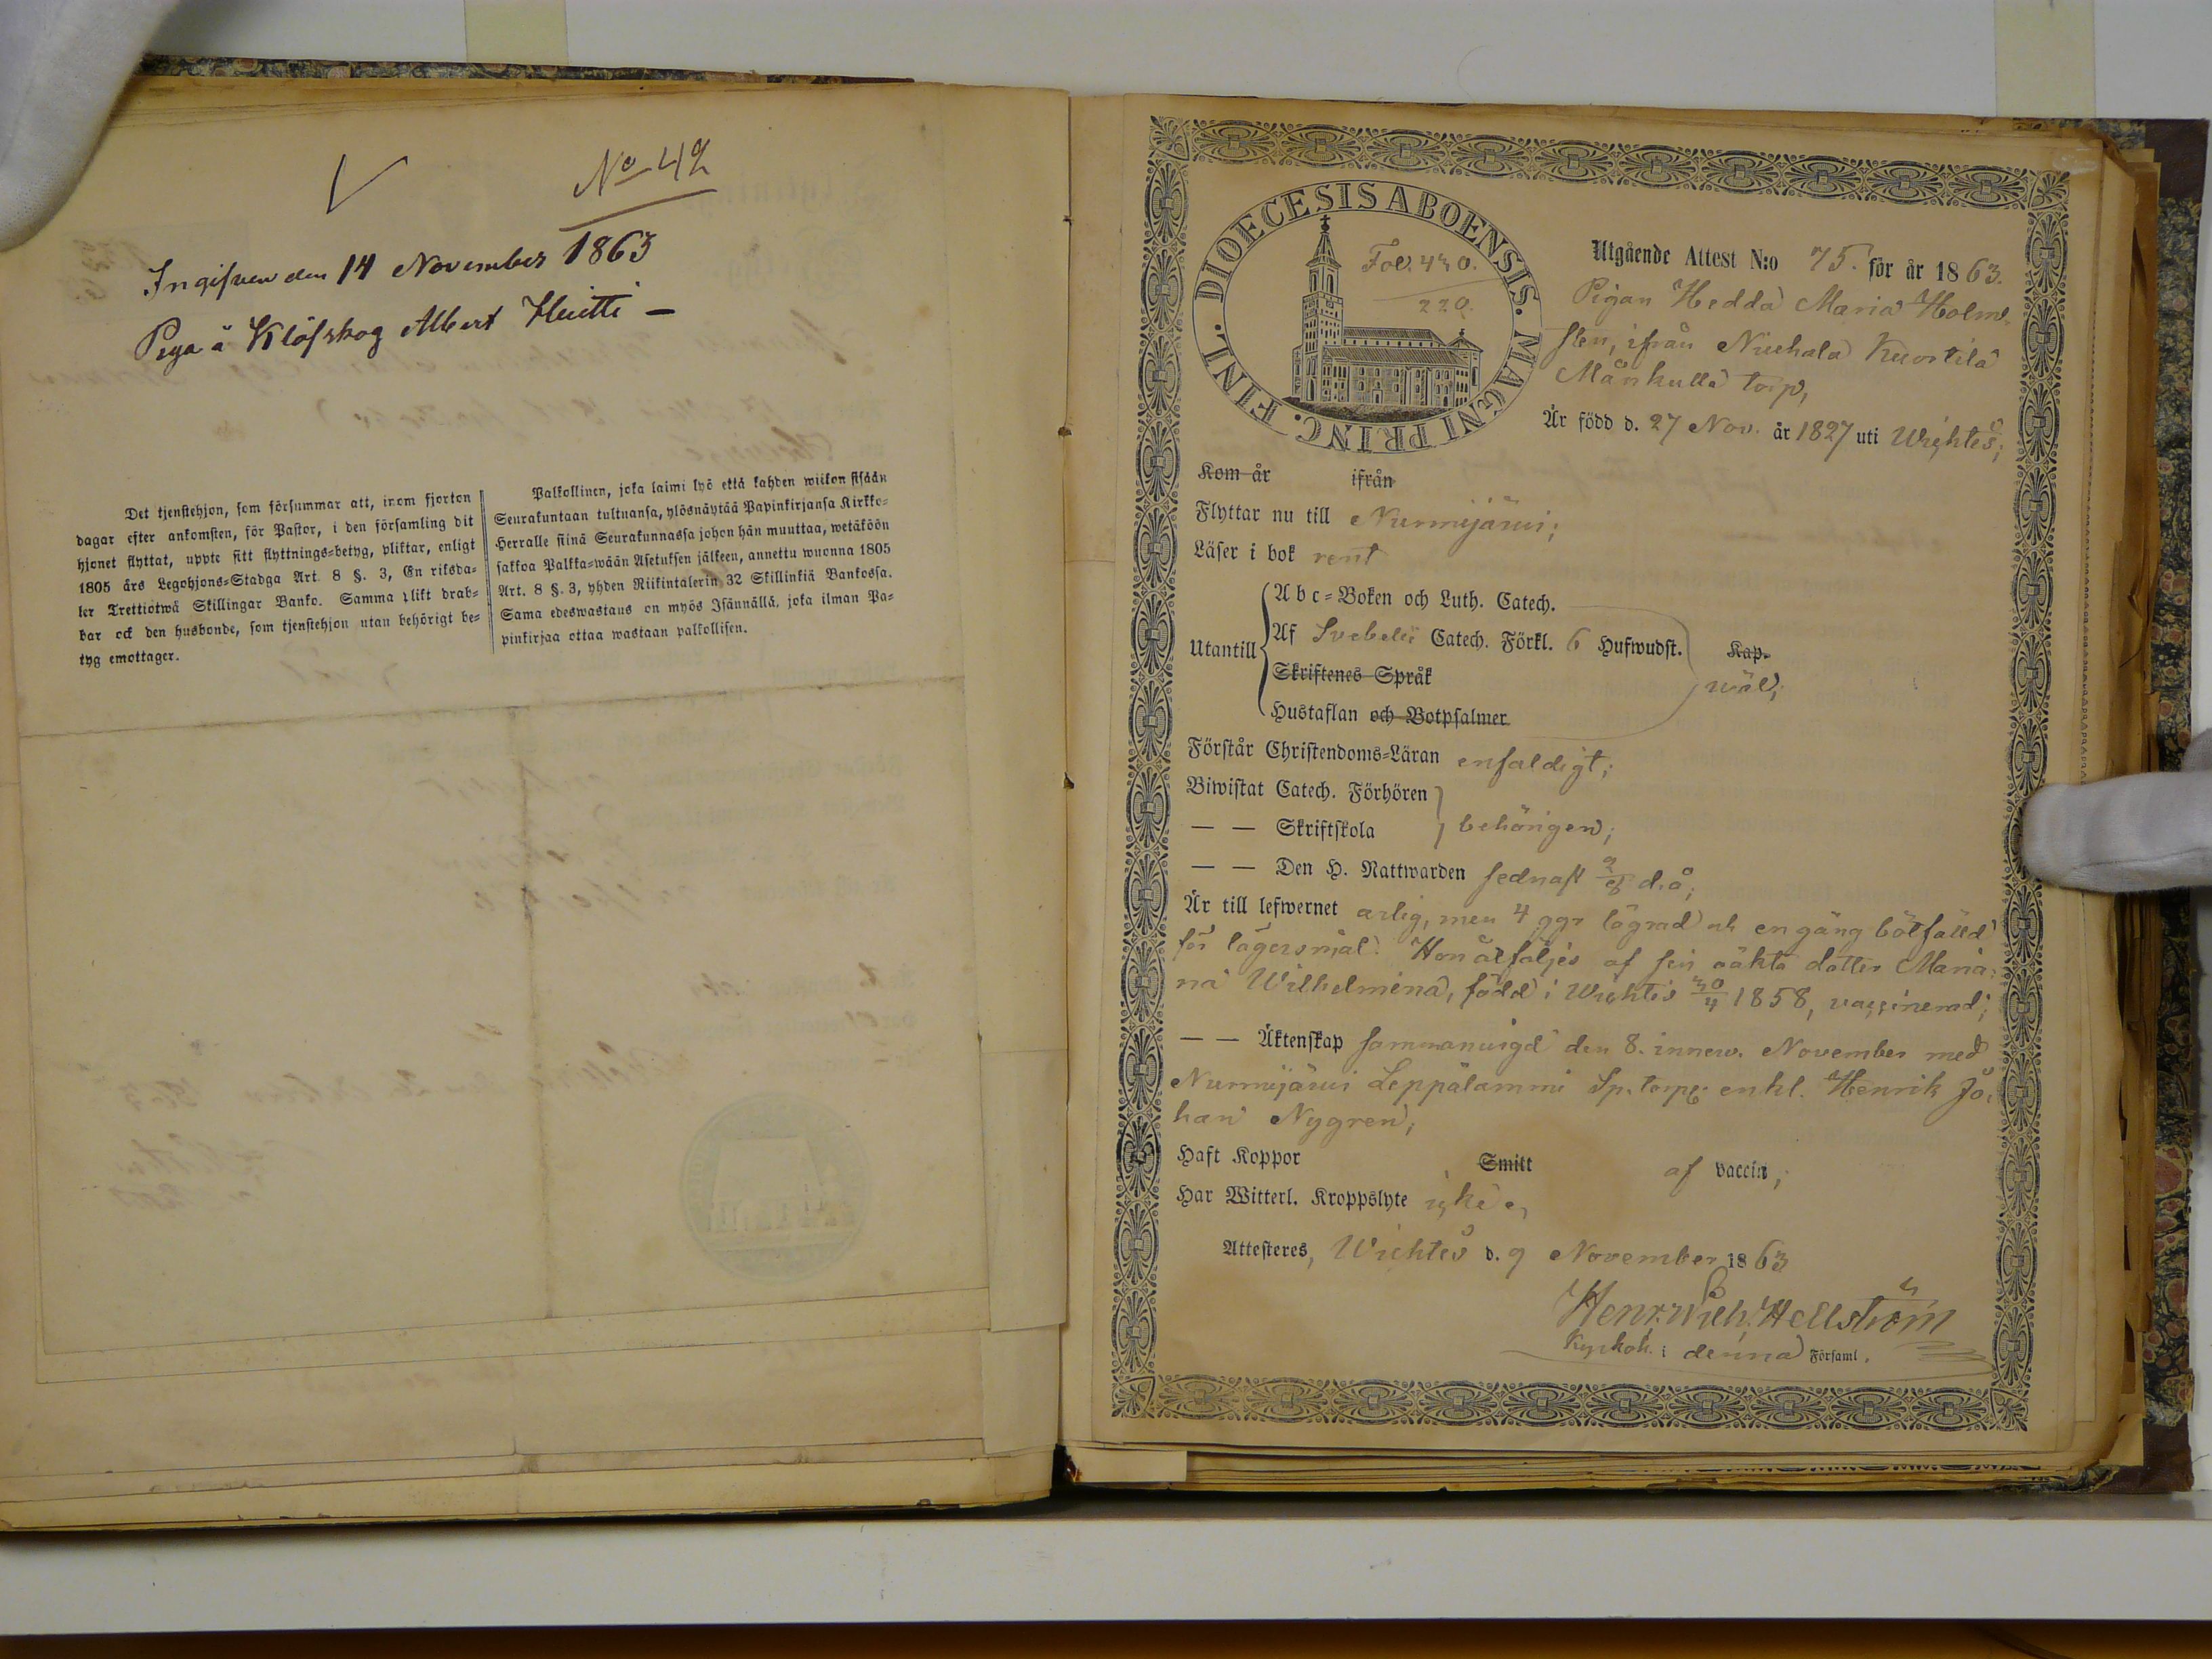 No 42
Ingifven den 14 November 1863
Piga å Klöfskog Albert Huitti –
Det tjenstehjon, som försummar att, inom fjorton
dagar efter ankomsten, för Pastor, i den församling dit
hjonet flyttat, uppte sitt flyttnings=betyg, pliktar, enligt
1805 års Legohjons=Stadga Art. 8 §. 3, En riksda=
ler Trettiotwå Skillingar Banko. Samma plikt drab=
bar ock den husbonde, som tjenstehjon utan behörigt be=
tyg emottager.
Palkollinen, joka laimi lyö että kahden wiikon sisään
Seurakuntaan tultuansa, ylösnäytää Papinkirjansa Kirkko=
Herralle siinä Seurakunnassa johon hän muuttaa, wetäköön
sakkoa Palkka=wään Asetuksen jälkeen, annettu wuonna 1805
Art. 8 §. 3, yhden Riikintalerin 32 Skillinkiä Bankossa.
Sama edeswastaus on myös Isännällä, joka ilman Pa=
pinkirjaa ottaa wastaan palkollisen.
DIOECESIS ABOENSIS. MAGNI PRINC. FINL.
Fol. 430.
220.
Utgående Attest N:o 75. för år 1863.
Pigan Hedda Maria Holm-
sten, ifrån Niuhala Kuortila
Månkulla torp,
Är född d. 27 Nov. år 1827 uti Wichtis;
Kom år ifrån
Flyttar nu till Nurmijärwi;
Läser i bok rent
Utantill
Abc=Boken och Luth. Catech.
Af Svebelii Catech. Förkl. 6 Hufwudst. Kap.
Skriftenes Språk
wäl;
Hustaflan och Botpsalmer
Förstår Christendoms=Läran enfaldigt;
Biwistat Catech. Förhören
— — Skriftskola behörigen;
— — Den H. Nattwarden sednast d. å;
Är till lefwernet ärlig, men 4 ggr lägrad och en gång bötfälld
för lägersmål. Hon åtföljes af sin oäkta dotter Maria
na Wilhelmina, född i Wichtis 30/4 1858, vaccinerad;
— — Äktenskap sammanvigd den 8. innew. November med
Nurmijärwi Leppälammi Sp. torp. enkl. Henrik Jo-
han Nygren;
Haft Koppor Smitt af vaccin;
Har Witterl. Kroppslyte icke,
Attesteres, Wichtis d. 9 November 1863
Henr. Wilh. Hellström
Kyrkoh. i denna Församl.